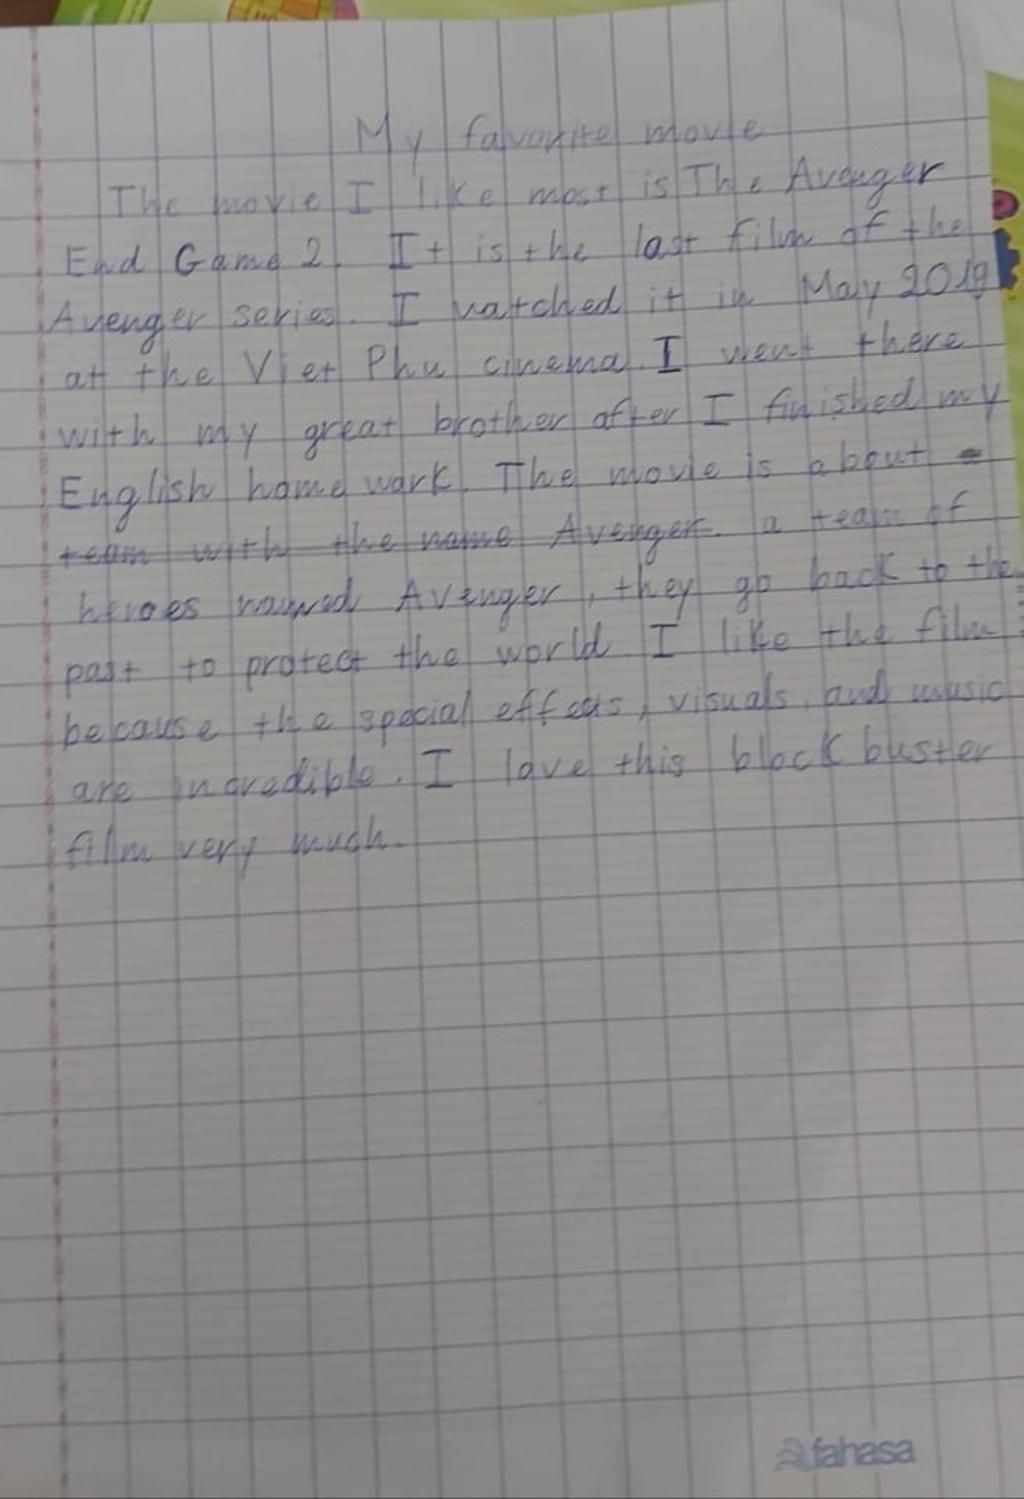 My favorite movie
The movie I like most is The Avenger
End Game 2. It is the last film of the
Avenger series. I watched it in May 2019
at the Viet Phu cinema. I went there
with my great brother after I finished my
English home work. The movie is about a
team with the name Avenger. a team of
heroes named Avenger, they go back to the
past to protect the world. I like the film
because the special effects, visuals, and music
are incredible. I love this block buster
film very much.
fahasa